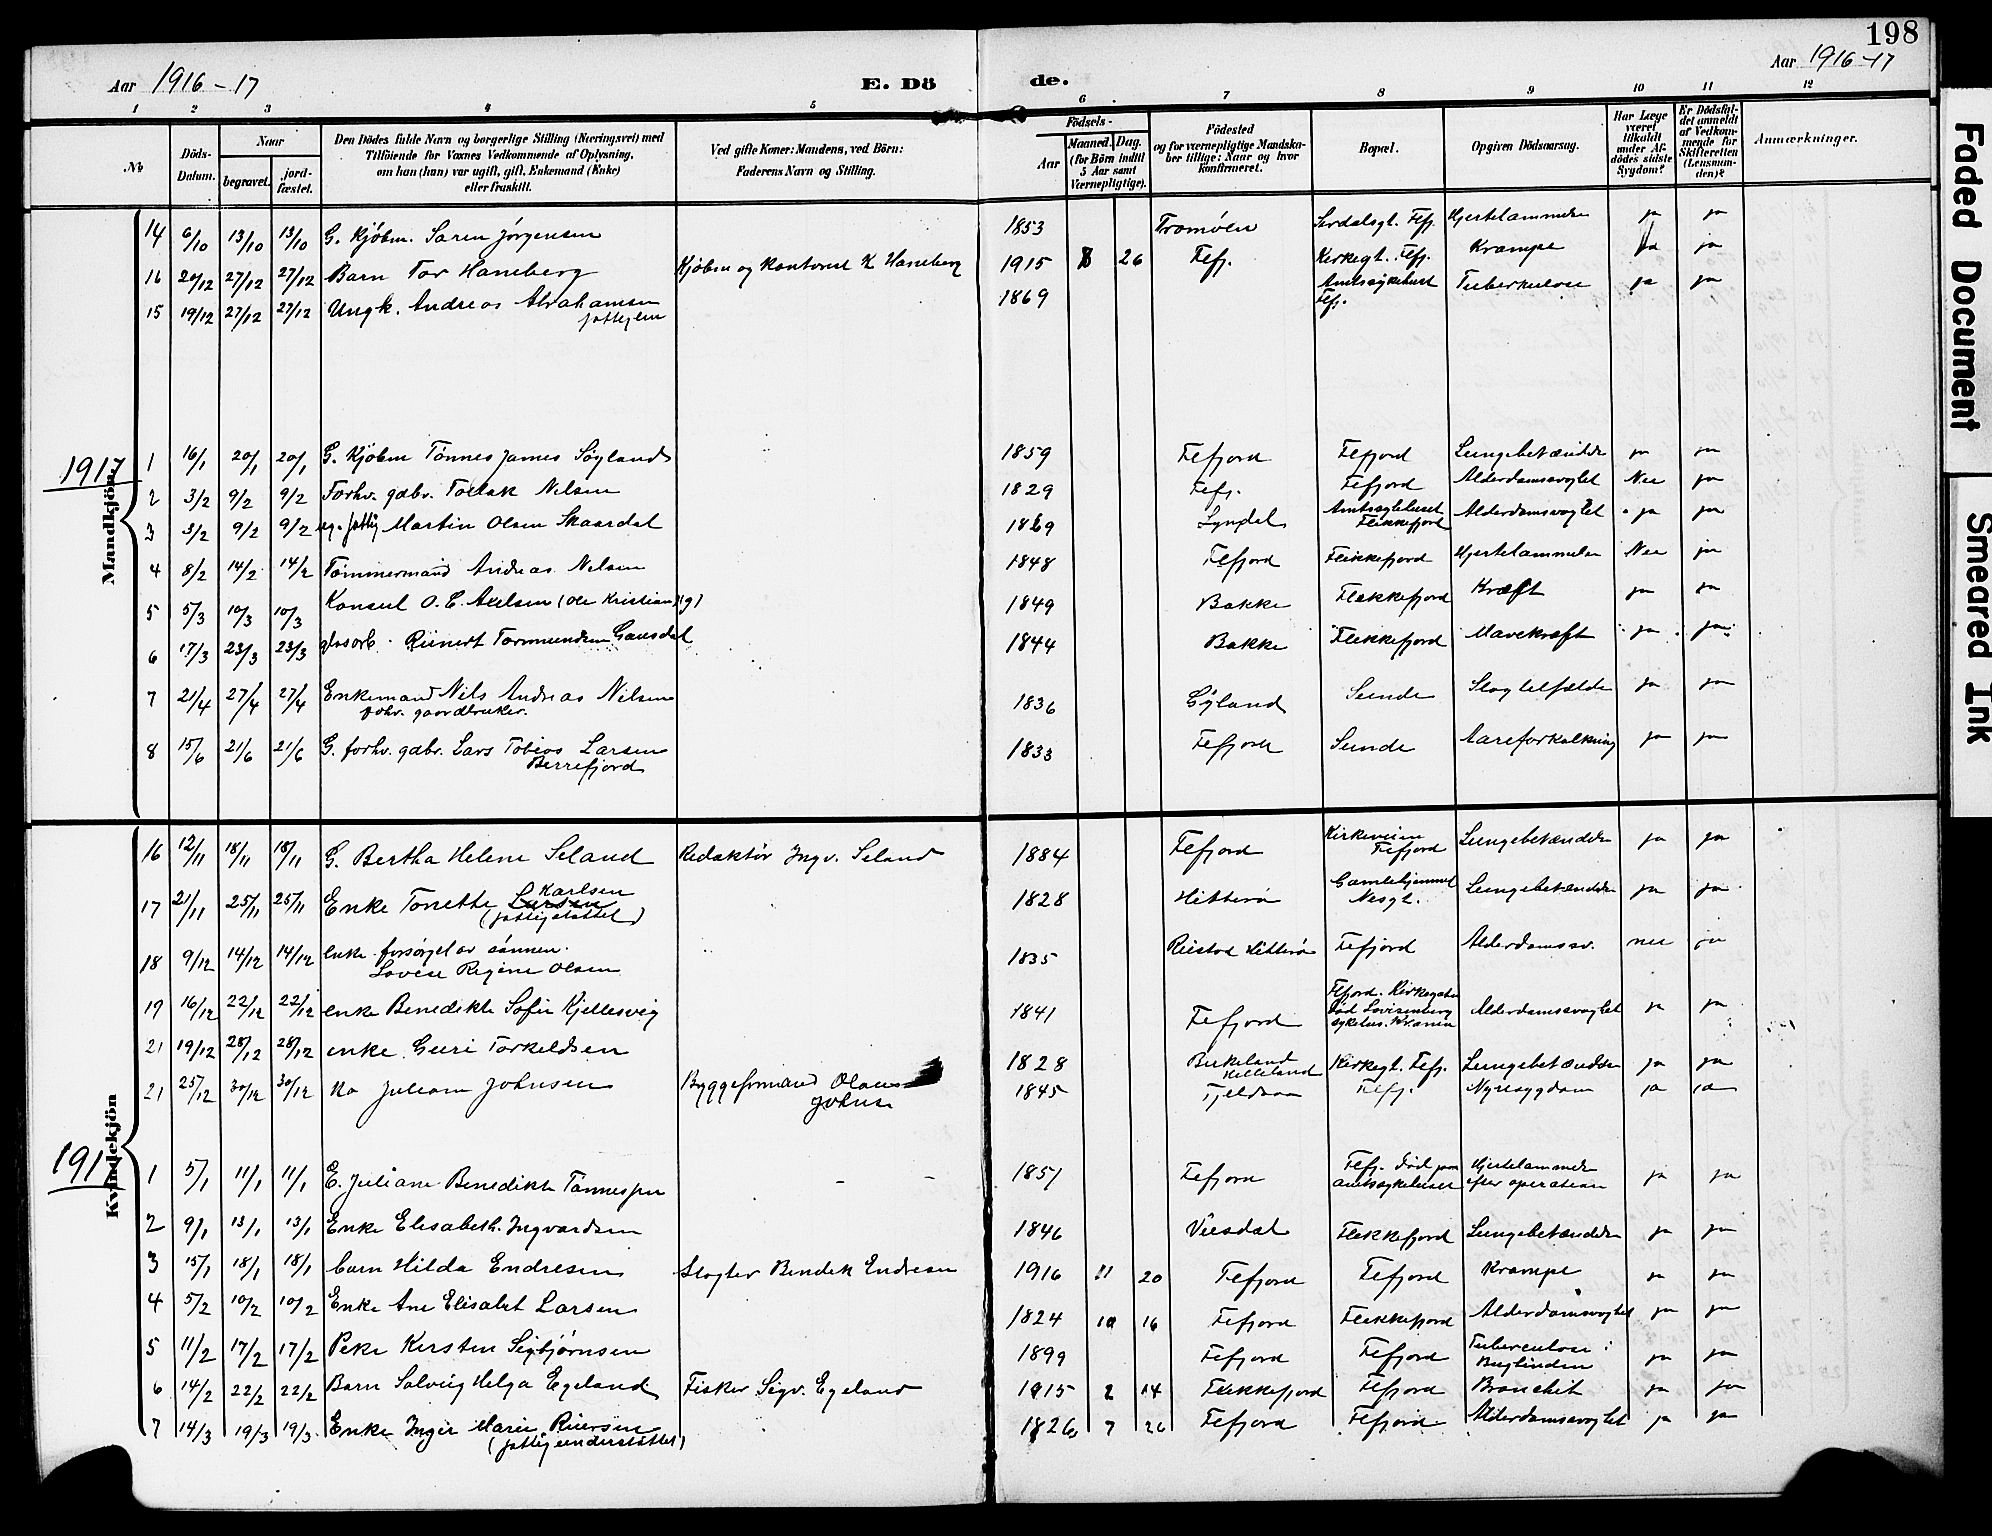 198
Aar 1916-17
E. Dö de.
Aar 1916-17
1 2 3 4 5 6 7 8 9 10 11 12
№
Döds-Datum.
Naar
begravet.
jord-fæstet.
Den Dödes fulde Navn og borgerlige Stilling (Næringsvei) med
Tilföiende for Voxnes Vedkommende af Oplysning,
om han (hun) var ugift, gift, Enkemand (Enke)
eller fraskilt.
Ved gifte Koner: Mandens, ved Börn:
Faderens Navn og Stilling.
Födsels-
Aar
Maaned. Dag.
(for Börn indtil
5 Aar samt
Værnepligtige).
Födested
og for værnepligtige Mandska-
ber tillige: Naar og hvor
konfirmeret.
Bopæl.
Opgiven Dödsaarsag.
Har Læge
været
tilkaldt
under Af-
dödes sidste
Sygdom?
Er Dödsfal-
det anmeldt
af Vedkom-
mende for
Skifteretten
(Lensman-
den)?
Anmærkninger.
Mandkjön.
14 6/10 13/10 13/10 G. Kjøbm. Søren Jørgensen 1853 Tromøen Fefj. Hjertelammelse ja ja
16 20/12 27/12 27/12 Barn Tor Haneberg Kjøbm og Konsul K Haneberg 1915 8 26 Fefj. Kirkegt. Fefj. Krampe ja ja
15 19/12 27/12 27/12 Ungk. Andreas Abrahamsen 1869 Amtssykehuset Fefj. Tuberkulose ja ja
fattiglem
1917
1 16/1 20/1 20/1 G. Kjøbm Tønnes James Søyland 1859 Fefjord Fefjord Lungebetændelse ja ja
2 3/2 9/2 9/2 Forhv. gdbr. Tollak Nilsen 1829 Fefj. Fefjord Alderdomssvaghet Nei ja
3 3/2 9/2 9/2 ug. fattig Martin Olsen Skaardal 1869 Lyngdal Amtssykehuset Flekkefjord Alderdomssvaghet ja ja
4 8/2 14/2 14/2 Tømmermand Andreas Nilsen 1848 Fefjord Flekkefjord Hjertelammelse Nei ja
5 5/3 10/3 10/3 Konsul O. C. Axelsen (Ole Kristian) (g) 1849 Bakke Flekkefjord Kræft ja ja
6 17/3 23/3 23/3 Reinert Tormundsen Gausdal 1844 Bakke Flekkefjord Mavekræft ja ja
7 21/4 27/4 27/4 Enkemand Nils Andreas Nilsen 1836 Gyland Sunde Slagtilfælde ja ja
forhv. gaardbruker.
8 15/6 21/6 21/6 G. forhv. gdbr. Lars Tobias Larsen 1833 Fefjord Sunde Aareforkalkning ja ja
Berrefjord
Kvindekjön
16 12/11 18/11 18/11 G. Bertha Helene Seland Redaktør Ingv. Seland 1884 Fefjord Kirkeveien Fefjord Lungebetændelse ja ja
17 21/11 25/11 25/11 Enke Tonette Larsen Karlsen 1828 Hitterø Gamlehjemmet Nesgt. Lungebetændelse ja ja
(fattigstøttet)
18 9/12 14/12 14/12 Enke forsørget av sønnen. 1835 Ræstad Hitterø Fefjord Alderdomssv. nei ja
Lovise Regine Olsen
19 16/12 22/12 22/12 enke Benedikte Sofie Kjellesvig 1841 Fefjord Fefjord. Kirkegaten død Lovisenberg sykehus. Kr.ania Alderdomssvaghet ja ja
21 19/12 28/12 28/12 enke Guri Torkeldsen 1828 Birkeland Helleland Kirkegt. Fefj. Lungebetændelse ja ja
21 25/12 30/12 30/12 Ko Juliane Johnsen Byggeformand Olaus Johnsen 1845 Fjeldsaa Fefj. Nyresygdom ja ja
1917
1 5/1 11/1 11/1 E. Juliane Benedikte Tønnessen - - 1851 Fefjord Fefj. død paa amtssykehuset Hjertelammelse efter operation ja ja
2 9/1 13/1 13/1 Enke Elisabeth Ingvardsen 1846 Flekkefjord Lungebetændelse ja ja
3 15/1 18/1 18/1 barn Hilda Endresen Slagter Bendik Endresen 1916 11 20 Fefjord Fefjord Krampe ja ja
4 5/2 10/2 10/2 Enke Ane Elisabet Larsen 1824 10 16 Fefjord Flekkefjord Alderdomssvaghet ja ja
5 11/2 17/2 17/2 Peke Kirsten Sigbjørnsen 1899 Fefjord Fefjord Tuberculose i Bughinden ja ja
6 14/2 22/2 22/2 Barn Solveig Helga Egeland Fisker Sigv. Egeland 1915 2 14 Flekkefjord Fefjord Bronchit ja ja
7 14/3 19/3 19/3 Enke Inger Marie Reiersen 1826 7 26 Fefjord Fefjord Alderdomssvaghet ja ja
(fattigunderstøttet)
Faded Document
Smeared Ink